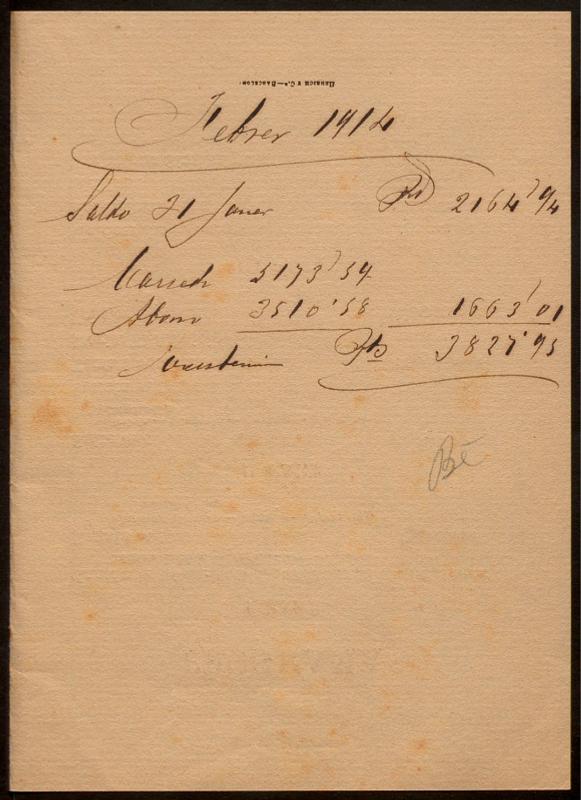 Henrich y C.ª—Barcelona
Febrer 1914
Saldo 31 Janer Pts 2164'94
Carrech 5173'59
Abono 3510'58 1663'01
Pts 3827'95
Bé